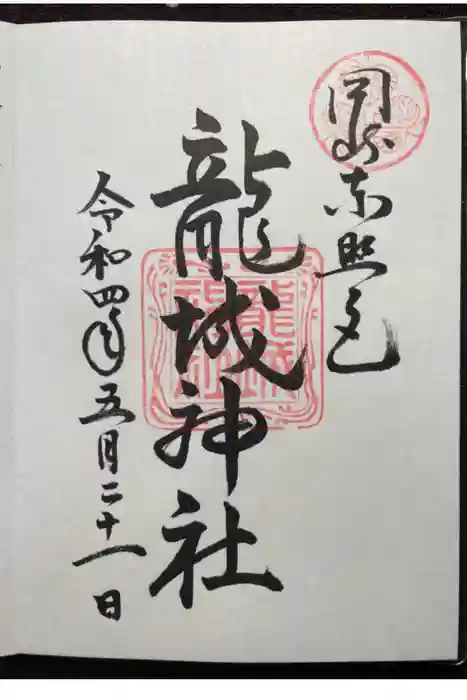 岡崎東照宮
龍城神社
龍城神社
令和四年五月二十一日